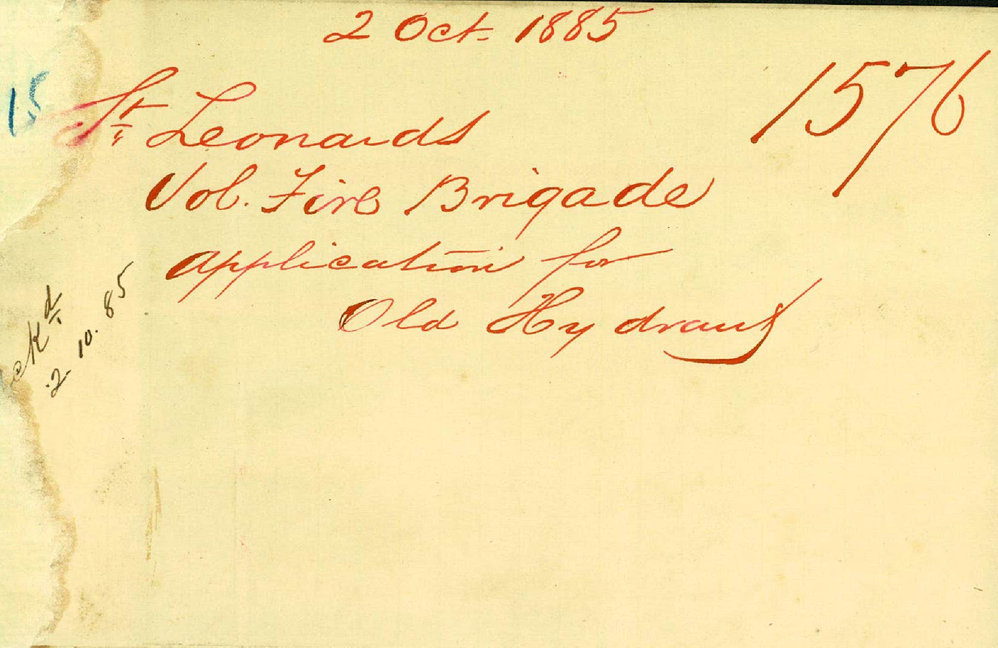 2 Oct. 1885
1576
15
St. Leonards
Vol. Fire Brigade
application for
Old Hydrant
ckd.
2.10.85